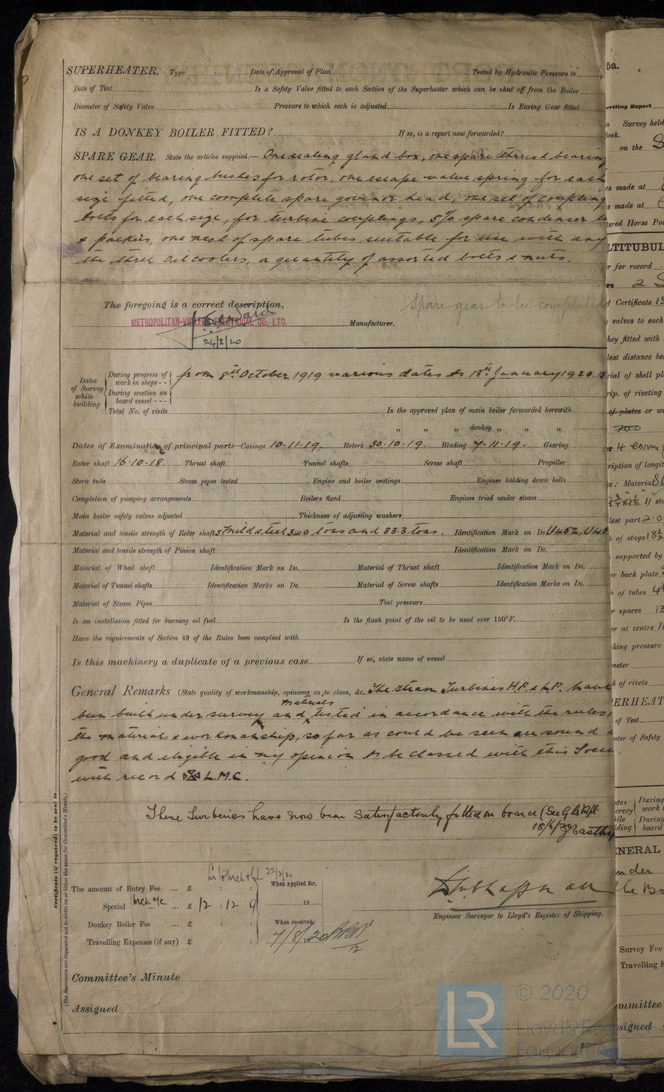 SUPERHEATER. Type Date of Approval of Plan Tested by Hydraulic Pressure to
Date of Test Is a Safety Valve fitted to each Section of the Superheater which can be shut off from the Boiler
Diameter of Safety Valve Pressure to which each is adjusted Is Easing Gear fitted
IS A DONKEY BOILER FITTED? If so, is a report now forwarded?
SPARE GEAR. State the articles supplied:— One sealing gland box, one spare thrust bearing
one set of bearing bushes for rotor, one escape valve spring for each
size fitted, one complete spare governor head, one set of coupling
bolts for each size, for turbine couplings, 5% spare condenser
& packing, one nest of spare tubes suitable for use with any
the three oil coolers, a quantity of assorted bolts & nuts.
Spare gear to be completed
The foregoing is a correct description,
METROPOLITAN-VICKERS ELECTRICAL CO. LTD. Manufacturer.
24/2/20
Dates of Survey while building
During progress of work in shops - - from 8th October 1919 various dates to 13th January 1920.
During erection on board vessel - - -
Total No. of visits In the approved plan of main boiler forwarded herewith
" " donkey " "
Dates of Examination of principal parts—Casings 10-11-19. Rotors 30-10-19. Blading 7-11-19. Gearing
Rotor shaft 16-10-18. Thrust shaft Tunnel shafts Screw shaft Propeller
Stern tube Steam pipes tested Engine and boiler seatings Engines holding down bolts
Completion of pumping arrangements Boilers fixed Engines tried under steam
Main boiler safety valves adjusted Thickness of adjusting washers
Material and tensile strength of Rotor shafts Mild steel 34.0 tons and 33.3 tons. Identification Mark on Do.
Material and tensile strength of Pinion shaft Identification Mark on Do.
Material of Wheel shaft Identification Mark on Do. Material of Thrust shaft Identification Mark on Do.
Material of Tunnel shafts Identification Marks on Do. Material of Screw shafts Identification Marks on Do.
Material of Steam Pipes Test pressure
Is an installation fitted for burning oil fuel Is the flash point of the oil to be used over 150°F.
Have the requirements of Section 49 of the Rules been complied with
Is this machinery a duplicate of a previous case If so, state name of vessel
General Remarks (State quality of workmanship, opinions as to class, &c. The steam Turbines H.P. & L.P. have
been built under survey and materials tested in accordance with the rules,
the material & workmanship, so far as could be seen are sound &
good and eligible in my opinion to be classed with this
with record L.M.C.
These Turbines have now been satisfactorily fitted on board (See
The amount of Entry Fee ... £ : : When applied for,
Special ... £ 12 : 12 : 0 19
Donkey Boiler Fee ... £ : : When received,
Travelling Expenses (if any) £ : : 7/8/20
Engineer Surveyor to Lloyd's Register of Shipping.
Committee's Minute
Assigned
Certificate (if required) to be sent to
(The Surveyors are requested not to write on or below the space for Committee's Minute.)
LR
© 2020
Lloyd's Register
Foundation